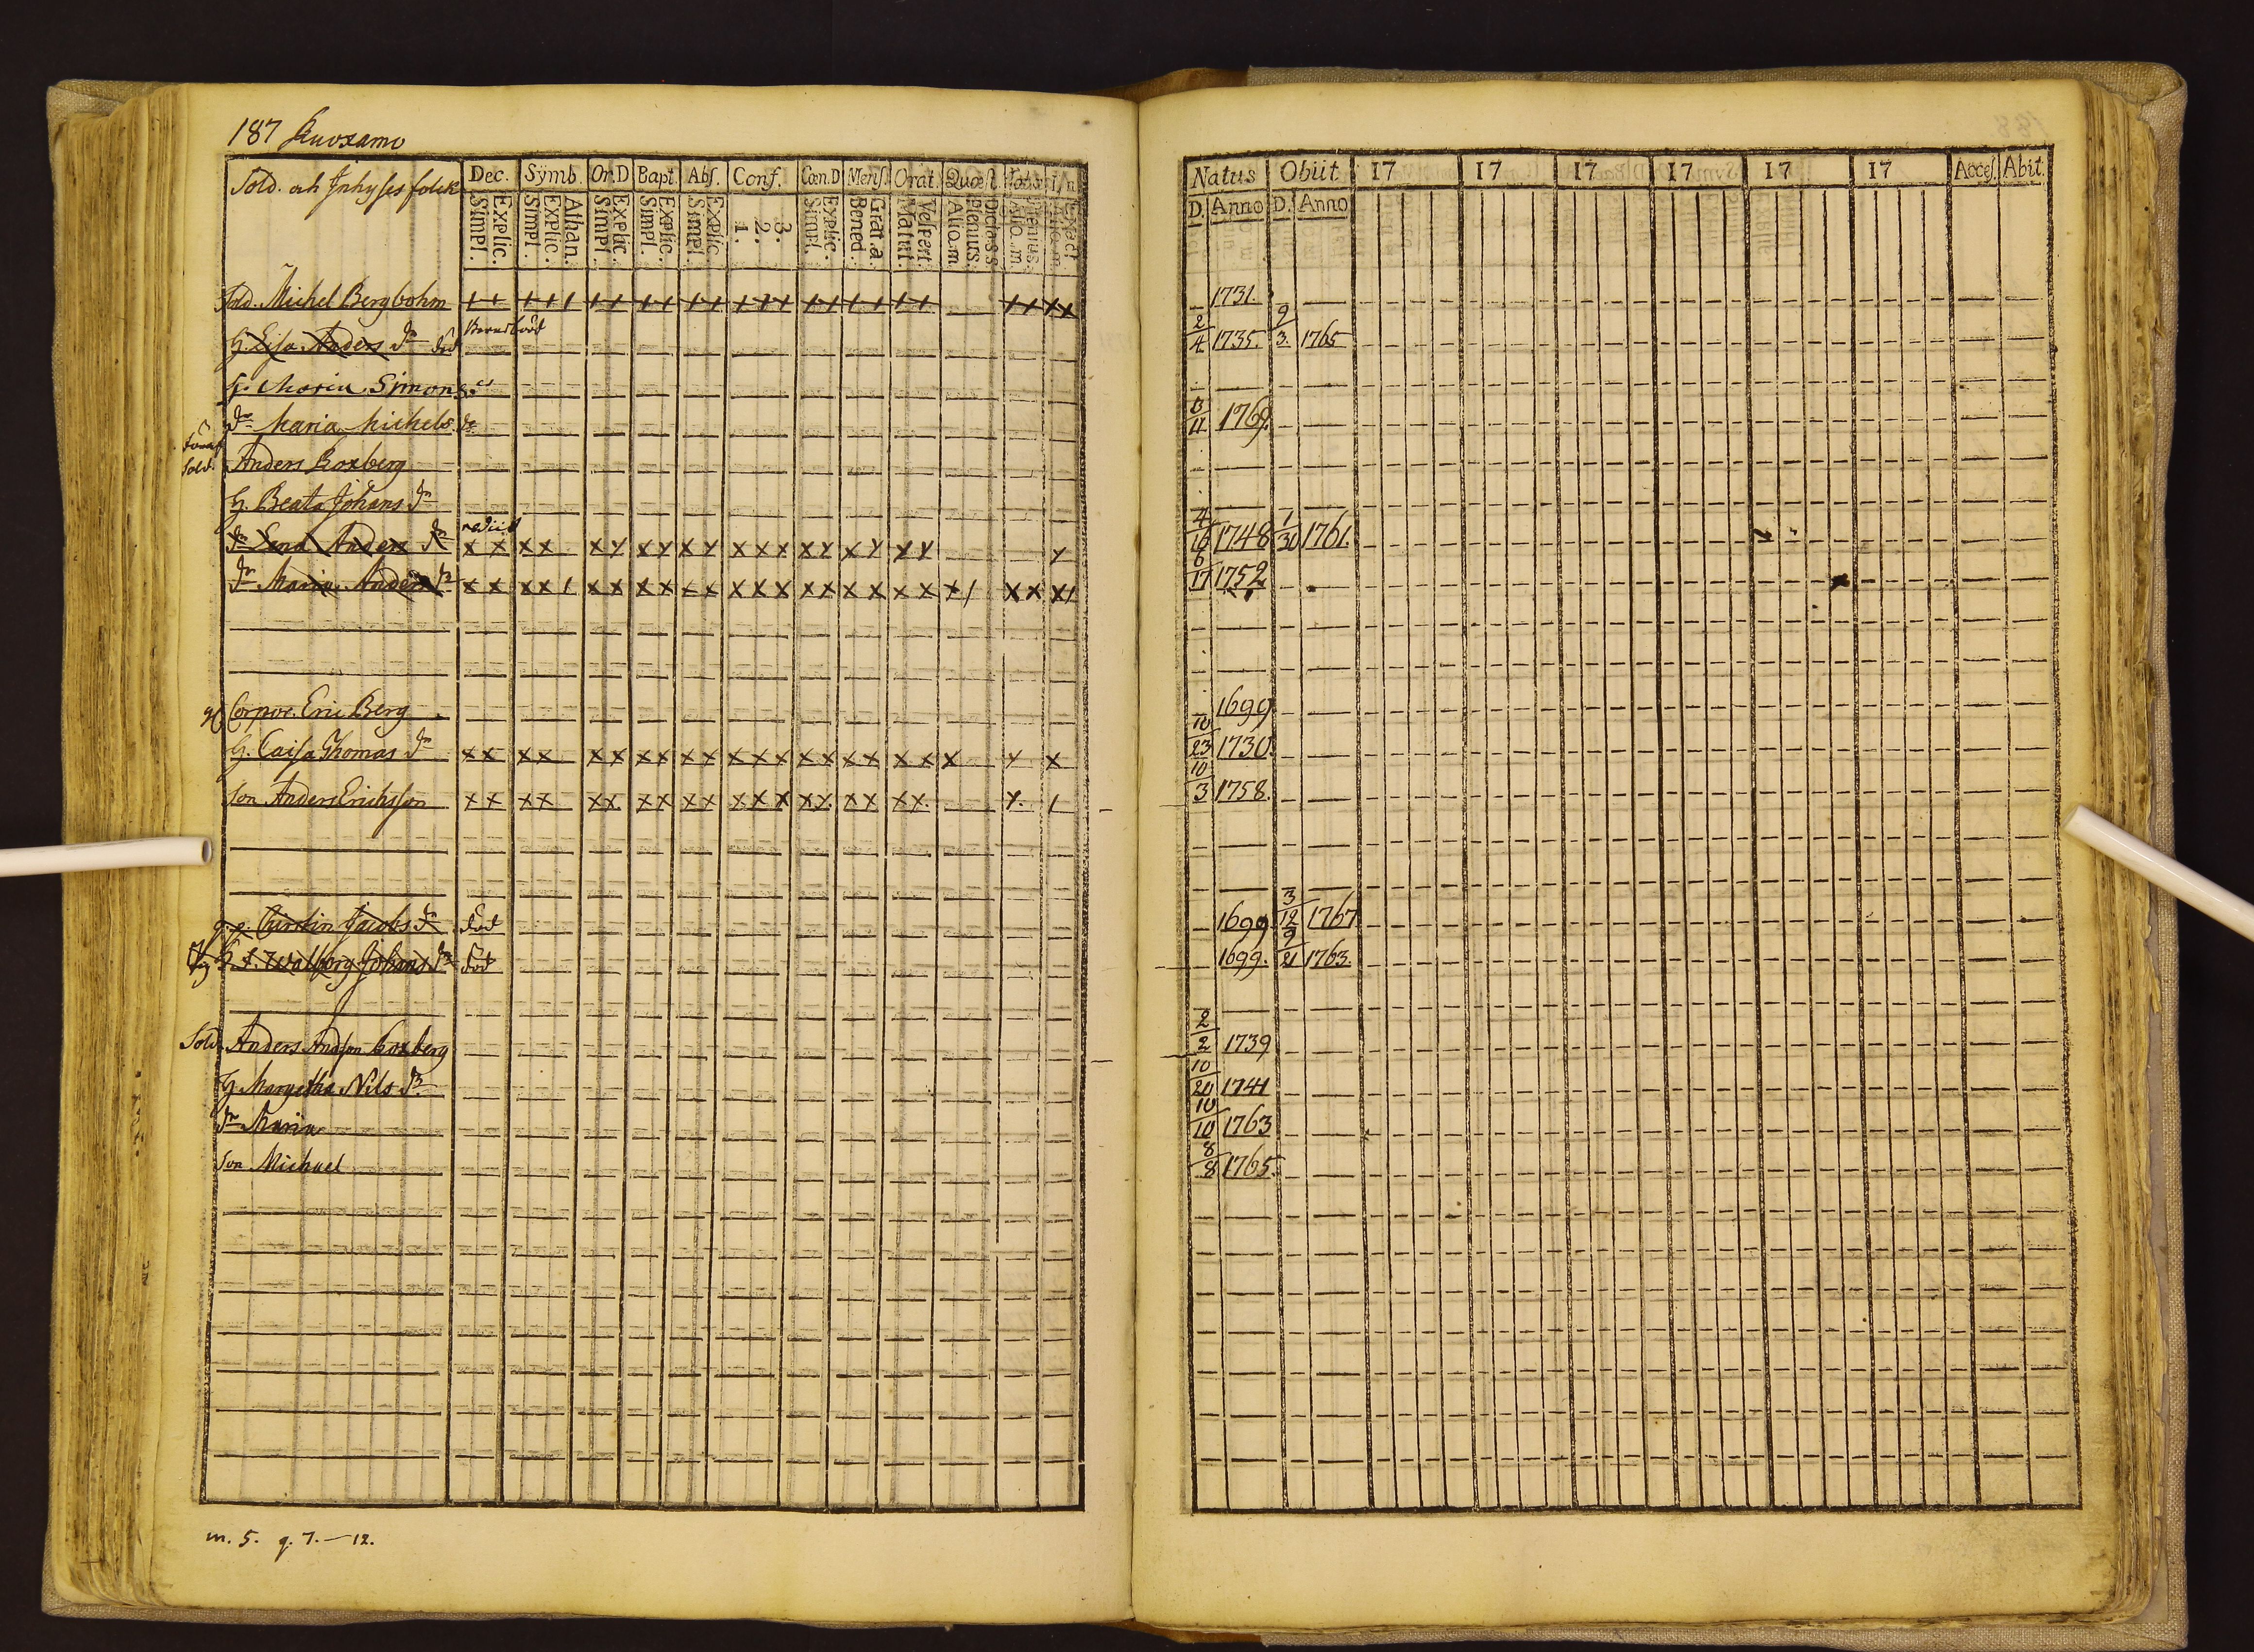 187 Kuoxamo
Sold. och Jnhyses folck
Dec. Symb. Or.D Bapt. Abs. Conf. Cœn.D Mens. Orat. Quæst.
Simpl. Explic. Simpl. Explic. Athan. Simpl. Explic. Simpl. Explic. Simpl. Explic. 1. 2. 3. Simpl. Explic. Bened. Grat. a. Matut. Vespert. Alio.m. Plenius.
Natus Obiit 17 17 17 17 17 17 Acces. Abit.
D. Anno D. Anno
Sold. Michel Bergbohm 1731.
H. Lisa Anders dr död Barnsbörd 2/4 1735. 9/3 1765
H. Maria Simons
dr Maria Michels dr 1769.
Sold. Anders Koxberg
H. Beata Johans dr
dr Lena Anders dr 4/16 1748 1/30 1761.
dr Maria Anders dr 6/17 1752
Corpor. Eric Berg 1699
H. Caisa Thomas dr 10/23 1730.
Son Anders Erichsson 10/3 1758.
Christin Jacobs dr död 1699. 3/12 1767
Walborg Johans dr död 1699. 9/21 1763.
Sold. Anders Andson Koxberg 2/2 1739
H. Margetha Nils dr 10/20 1741
dr Maria 10/10 1763
Son Michael 8/8 1765.
m. 5. q. 7. — 12.